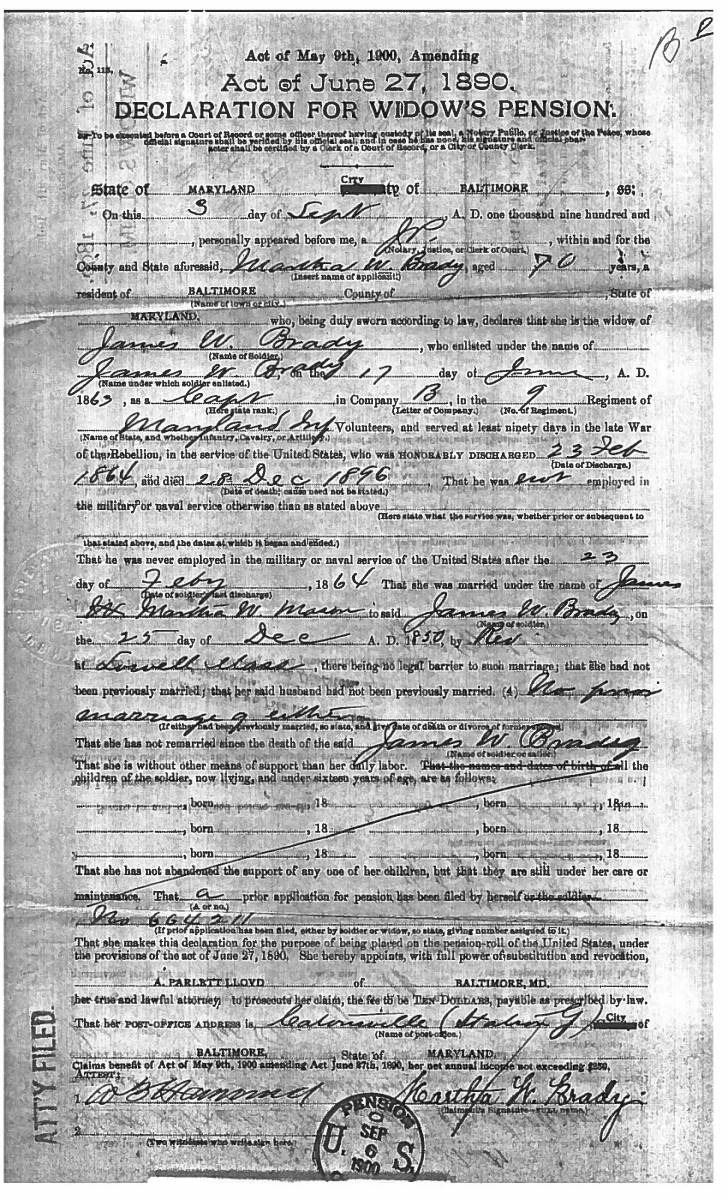 B P
Act of May 9th, 1900, Amending
No. 113.
Act of June 27, 1890.
DECLARATION FOR WIDOW'S PENSION.
To be executed before a Court of Record or some officer thereof having custody of its seal, a Notary Public, or Justice of the Peace, whose
official signature shall be verified by his official seal, and in case he has none, his signature and official char-
acter shall be certified by a Clerk of a Court of Record, or a City or County Clerk.
City
State of MARYLAND ty of BALTIMORE, ss:
On this 3 day of Sept A. D. one thousand nine hundred and
, personally appeared before me, a J.P. , within and for the
(Notary, Justice, or Clerk of Court.)
County and State aforesaid, Martha W. Brady, aged 70 years, a
(Insert name of applicant)
resident of BALTIMORE County of State of
(Name of town or city.)
MARYLAND. who, being duly sworn according to law, declares that she is the widow of
James W. Brady, who enlisted under the name of
(Name of Soldier.)
James W. Brady, on the 17 day of June, A. D.
(Name under which soldier enlisted.)
1863, as a Capt in Company B, in the 9 Regiment of
(Here state rank.) (Letter of Company.) (No. of Regiment.)
Maryland Inf Volunteers, and served at least ninety days in the late War
(Name of State, and whether Infantry, Cavalry, or Artillery.)
of the Rebellion, in the service of the United States, who was HONORABLY DISCHARGED 23 Feb
(Date of Discharge.)
1864, and died 28 Dec 1896 That he was not employed in
(Date of death; cause need not be stated.)
the military or naval service otherwise than as stated above
(Here state what the service was, whether prior or subsequent to
that stated above, and the dates at which it began and ended.)
That he was never employed in the military or naval service of the United States after the 23
day of Feby, 1864 That she was married under the name of James
(Date of soldier's last discharge)
Martha W. to said James W. Brady, on
(Name of soldier.)
the 25 day of Dec A. D. 1850, by Rev
at Lowell Mass, there being no legal barrier to such marriage; that she had not
been previously married; that her said husband had not been previously married. (4) No prior
marriage of either
(If either had been previously married, so state, and give date of death or divorce of former spouse.)
That she has not remarried since the death of the said James W Brady
(Name of soldier or sailor.)
That she is without other means of support than her daily labor. That the names and dates of birth of all the
children of the soldier, now living, and under sixteen years of age, are as follows:
, born , 18 , born , 18
, born , 18 , born , 18
, born , 18 , born , 18
That she has not abandoned the support of any one of her children, but that they are still under her care or
maintenance. That a prior application for pension has been filed by herself or the soldier
(A or no.)
No 664211
(If prior application has been filed, either by soldier or widow, so state, giving number assigned to it.)
That she makes this declaration for the purpose of being placed on the pension-roll of the United States, under
the provisions of the act of June 27, 1890. She hereby appoints, with full power of substitution and revocation,
A. PARLETT LLOYD of BALTIMORE, MD.
her true and lawful attorney to prosecute her claim, the fee to be TEN DOLLARS, payable as prescribed by law.
That her POST-OFFICE ADDRESS is, Catonsville (Station G) City of
(Name of post-office.)
BALTIMORE, State of MARYLAND.
Claims benefit of Act of May 9th, 1900 amending Act June 27th, 1890, her net annual income not exceeding $250.
ATTEST:
1. Martha W. Brady
(Claimant's Signature
2
(Two witnesses who write sign here
ATT'Y FILED.
PENSION
U. S.
SEP
6
1900